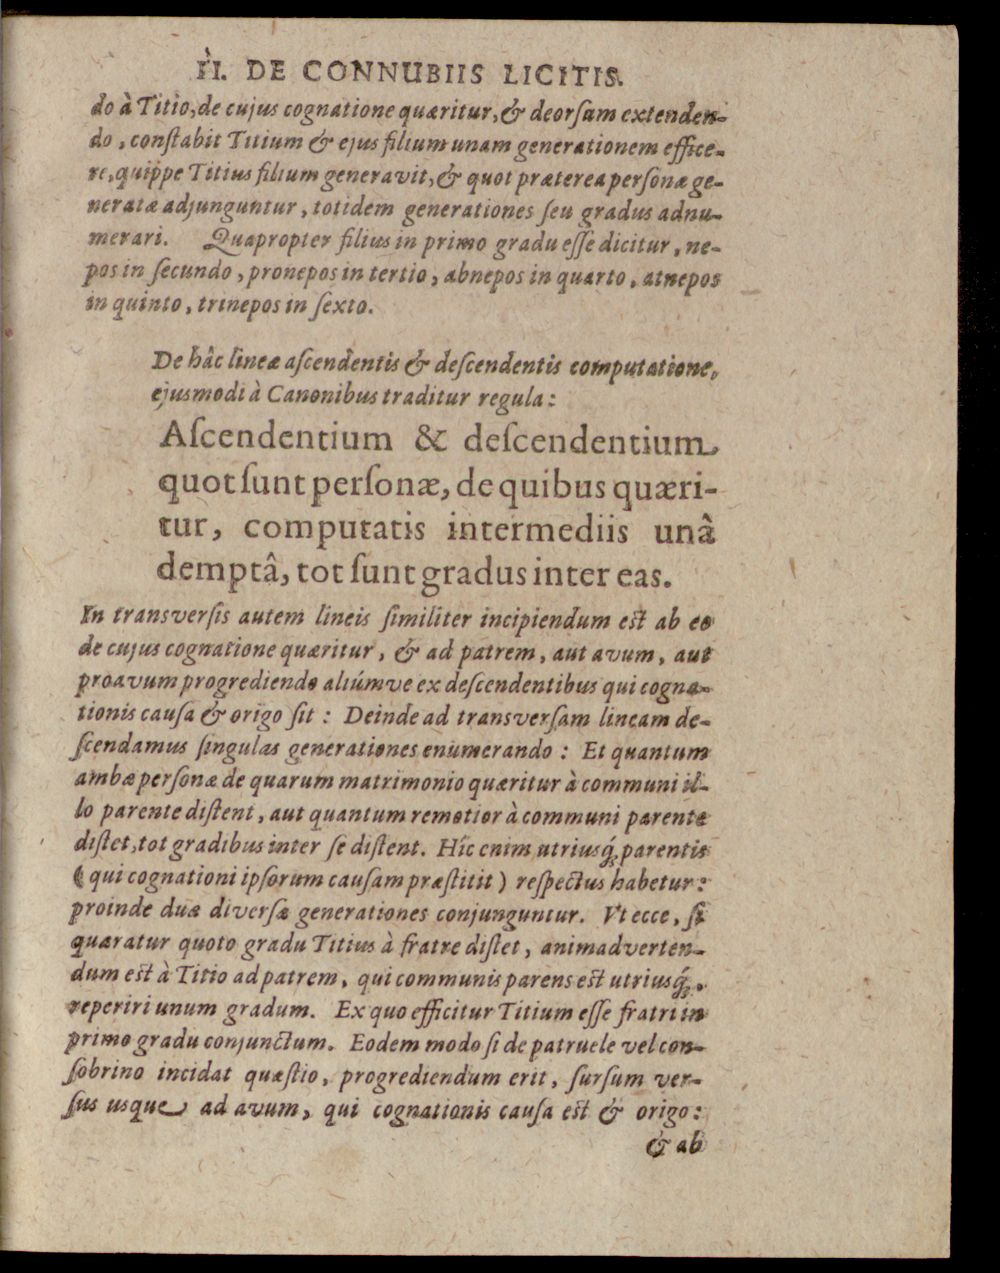 II. DE CONNUBIIS LICITIS.
do à Titio, de cujus cognatione quæritur, & deorſum extenden-
do, conſtabit Titium & ejus filium unam generationem effice-
re, quippe Titius filium generavit, & quot præterea perſonæ ge-
neratæ adjunguntur, totidem generationes ſeu gradus adnu-
merari. Quapropter filius in primo gradu eſſe dicitur, ne-
pos in ſecundo, pronepos in tertio, abnepos in quarto, atnepos
in quinto, trinepos in ſexto.
De hâc lineæ aſcendentis & deſcendentis computatione,
ejusmodi à Canonibus traditur regula:
Aſcendentium & deſcendentium
quot ſunt perſonæ, de quibus quæri-
tur, computatis intermediis unâ
demptâ, tot ſunt gradus inter eas.
In transverſis autem lineis ſimiliter incipiendum eſt ab eo
de cujus cognatione quæritur, & ad patrem, aut avum, aut
proavum progrediendo aliúmve ex deſcendentibus qui cogna-
tionis cauſa & origo ſit: Deinde ad transverſam lineam de-
ſcendamus ſingulas generationes enumerando: Et quantum
ambæ perſonæ de quarum matrimonio quæritur à communi il-
lo parente diſtent, aut quantum remotior à communi parente
diſtet, tot gradibus inter ſe diſtent. Hîc enim utriusq́; parentis
(qui cognationi ipſorum cauſam præſtitit) reſpectus habetur:
proinde duæ diverſæ generationes conjunguntur. Vt ecce, ſi
quæratur quoto gradu Titius à fratre diſtet, animadverten-
dum eſt à Titio ad patrem, qui communis parens eſt utriusq́;,
reperiri unum gradum. Ex quo efficitur Titium eſſe fratri in
primo gradu conjunctum. Eodem modo ſi de patruele vel con-
ſobrino incidat quæſtio, progrediendum erit, ſurſum ver-
ſus usque ad avum, qui cognationis cauſa eſt & origo:
& ab